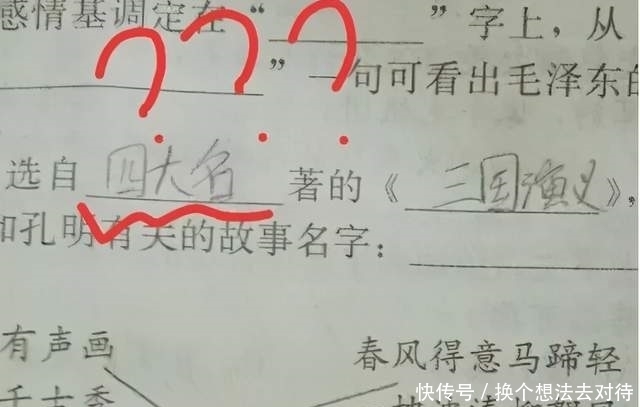 感情基调定在“________”字上，从
________”一句可看出毛泽东的
选自 四大名 著的《 三国演义 》，
和孔明有关的故事名字：________
有声画
春风得意马蹄轻
千古秀
快传号／换个想法去对待